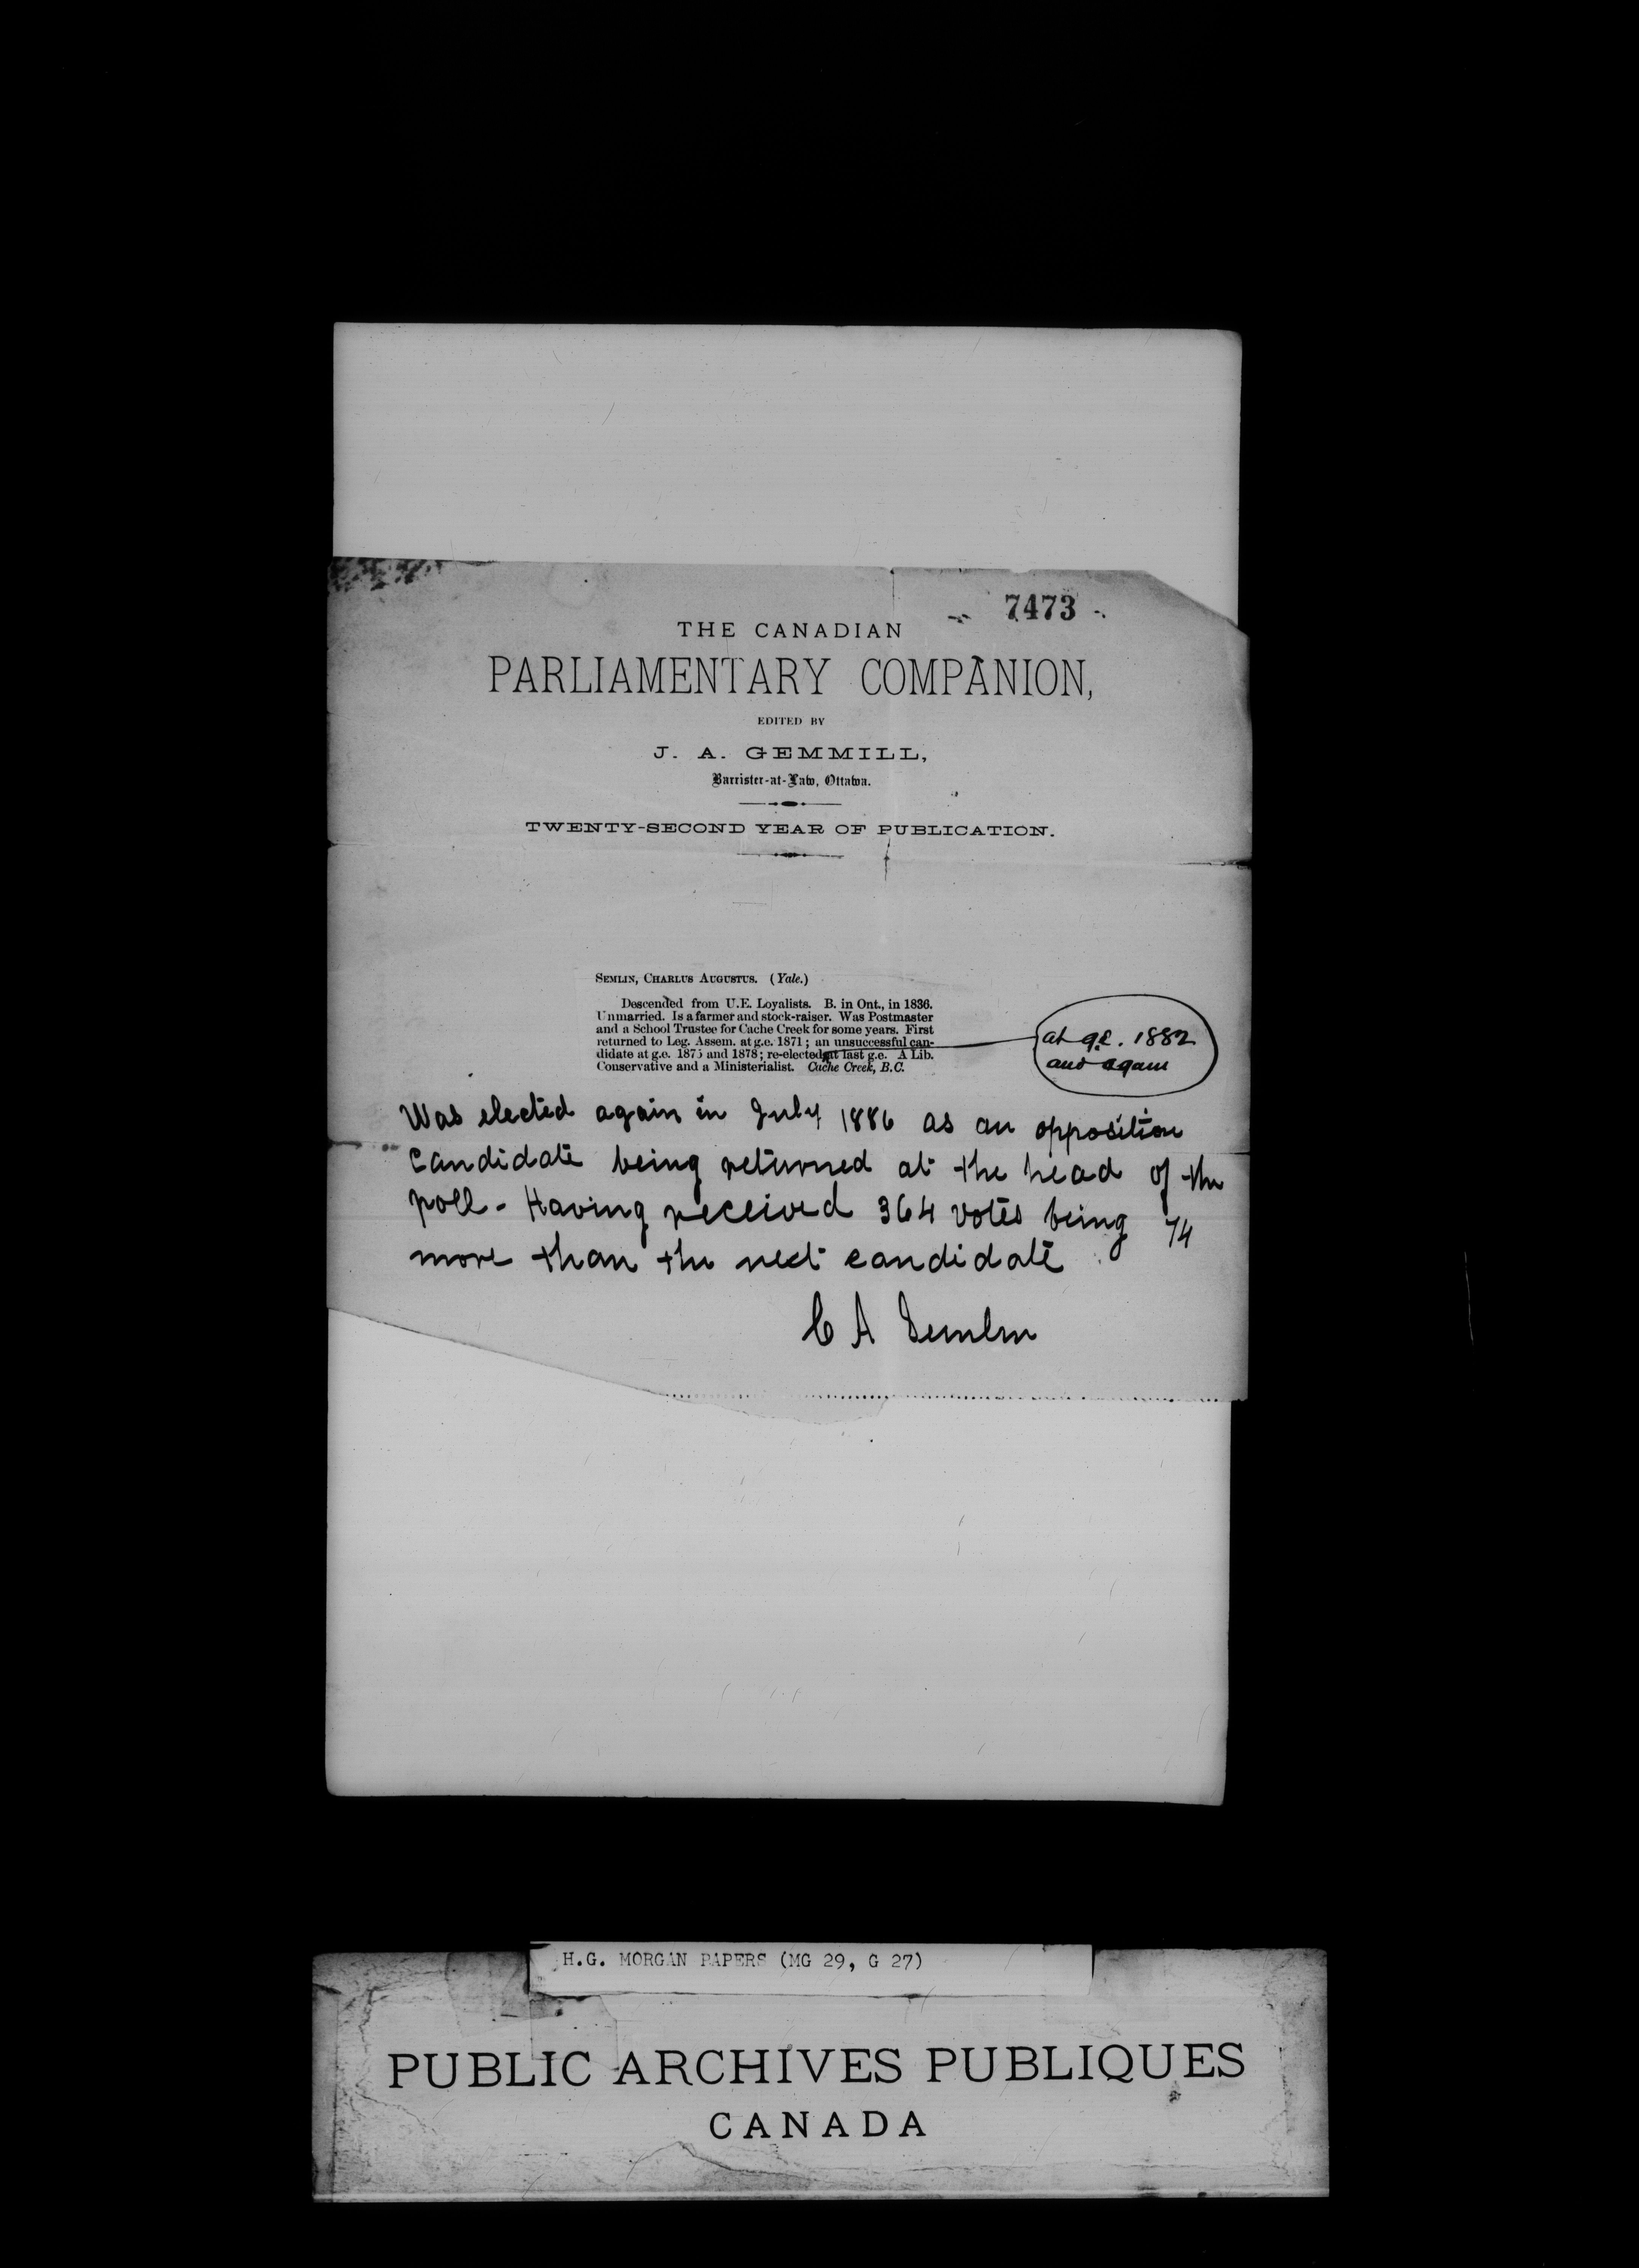 7473
THE CANADIAN
PARLIAMENTARY COMPANION,
EDITED BY
J. A. GEMMILL,
Barrister-at-Law, Ottawa.
TWENTY-SECOND YEAR OF PUBLICATION.
SEMLIN, CHARLUS AUGUSTUS. (Yale.)
Descended from U.E. Loyalists. B. in Ont., in 1836.
Unmarried. Is a farmer and stock-raiser. Was Postmaster
and a School Trustee for Cache Creek for some years. First
returned to Leg. Assem. at g.e. 1871; an unsuccessful can-
didate at g.e. 1875 and 1878; re-elected at last g.e. A Lib.
Conservative and a Ministerialist. Cache Creek, B.C.
at g.e. 1882
and again
Was elected again in July 1886 as an opposition
Candidate being returned at the head of the
poll - Having received 364 votes being 74
more than the next candidate
C A Semlin
H.G. MORGAN PAPERS (MG 29, G 27)
PUBLIC ARCHIVES PUBLIQUES
CANADA